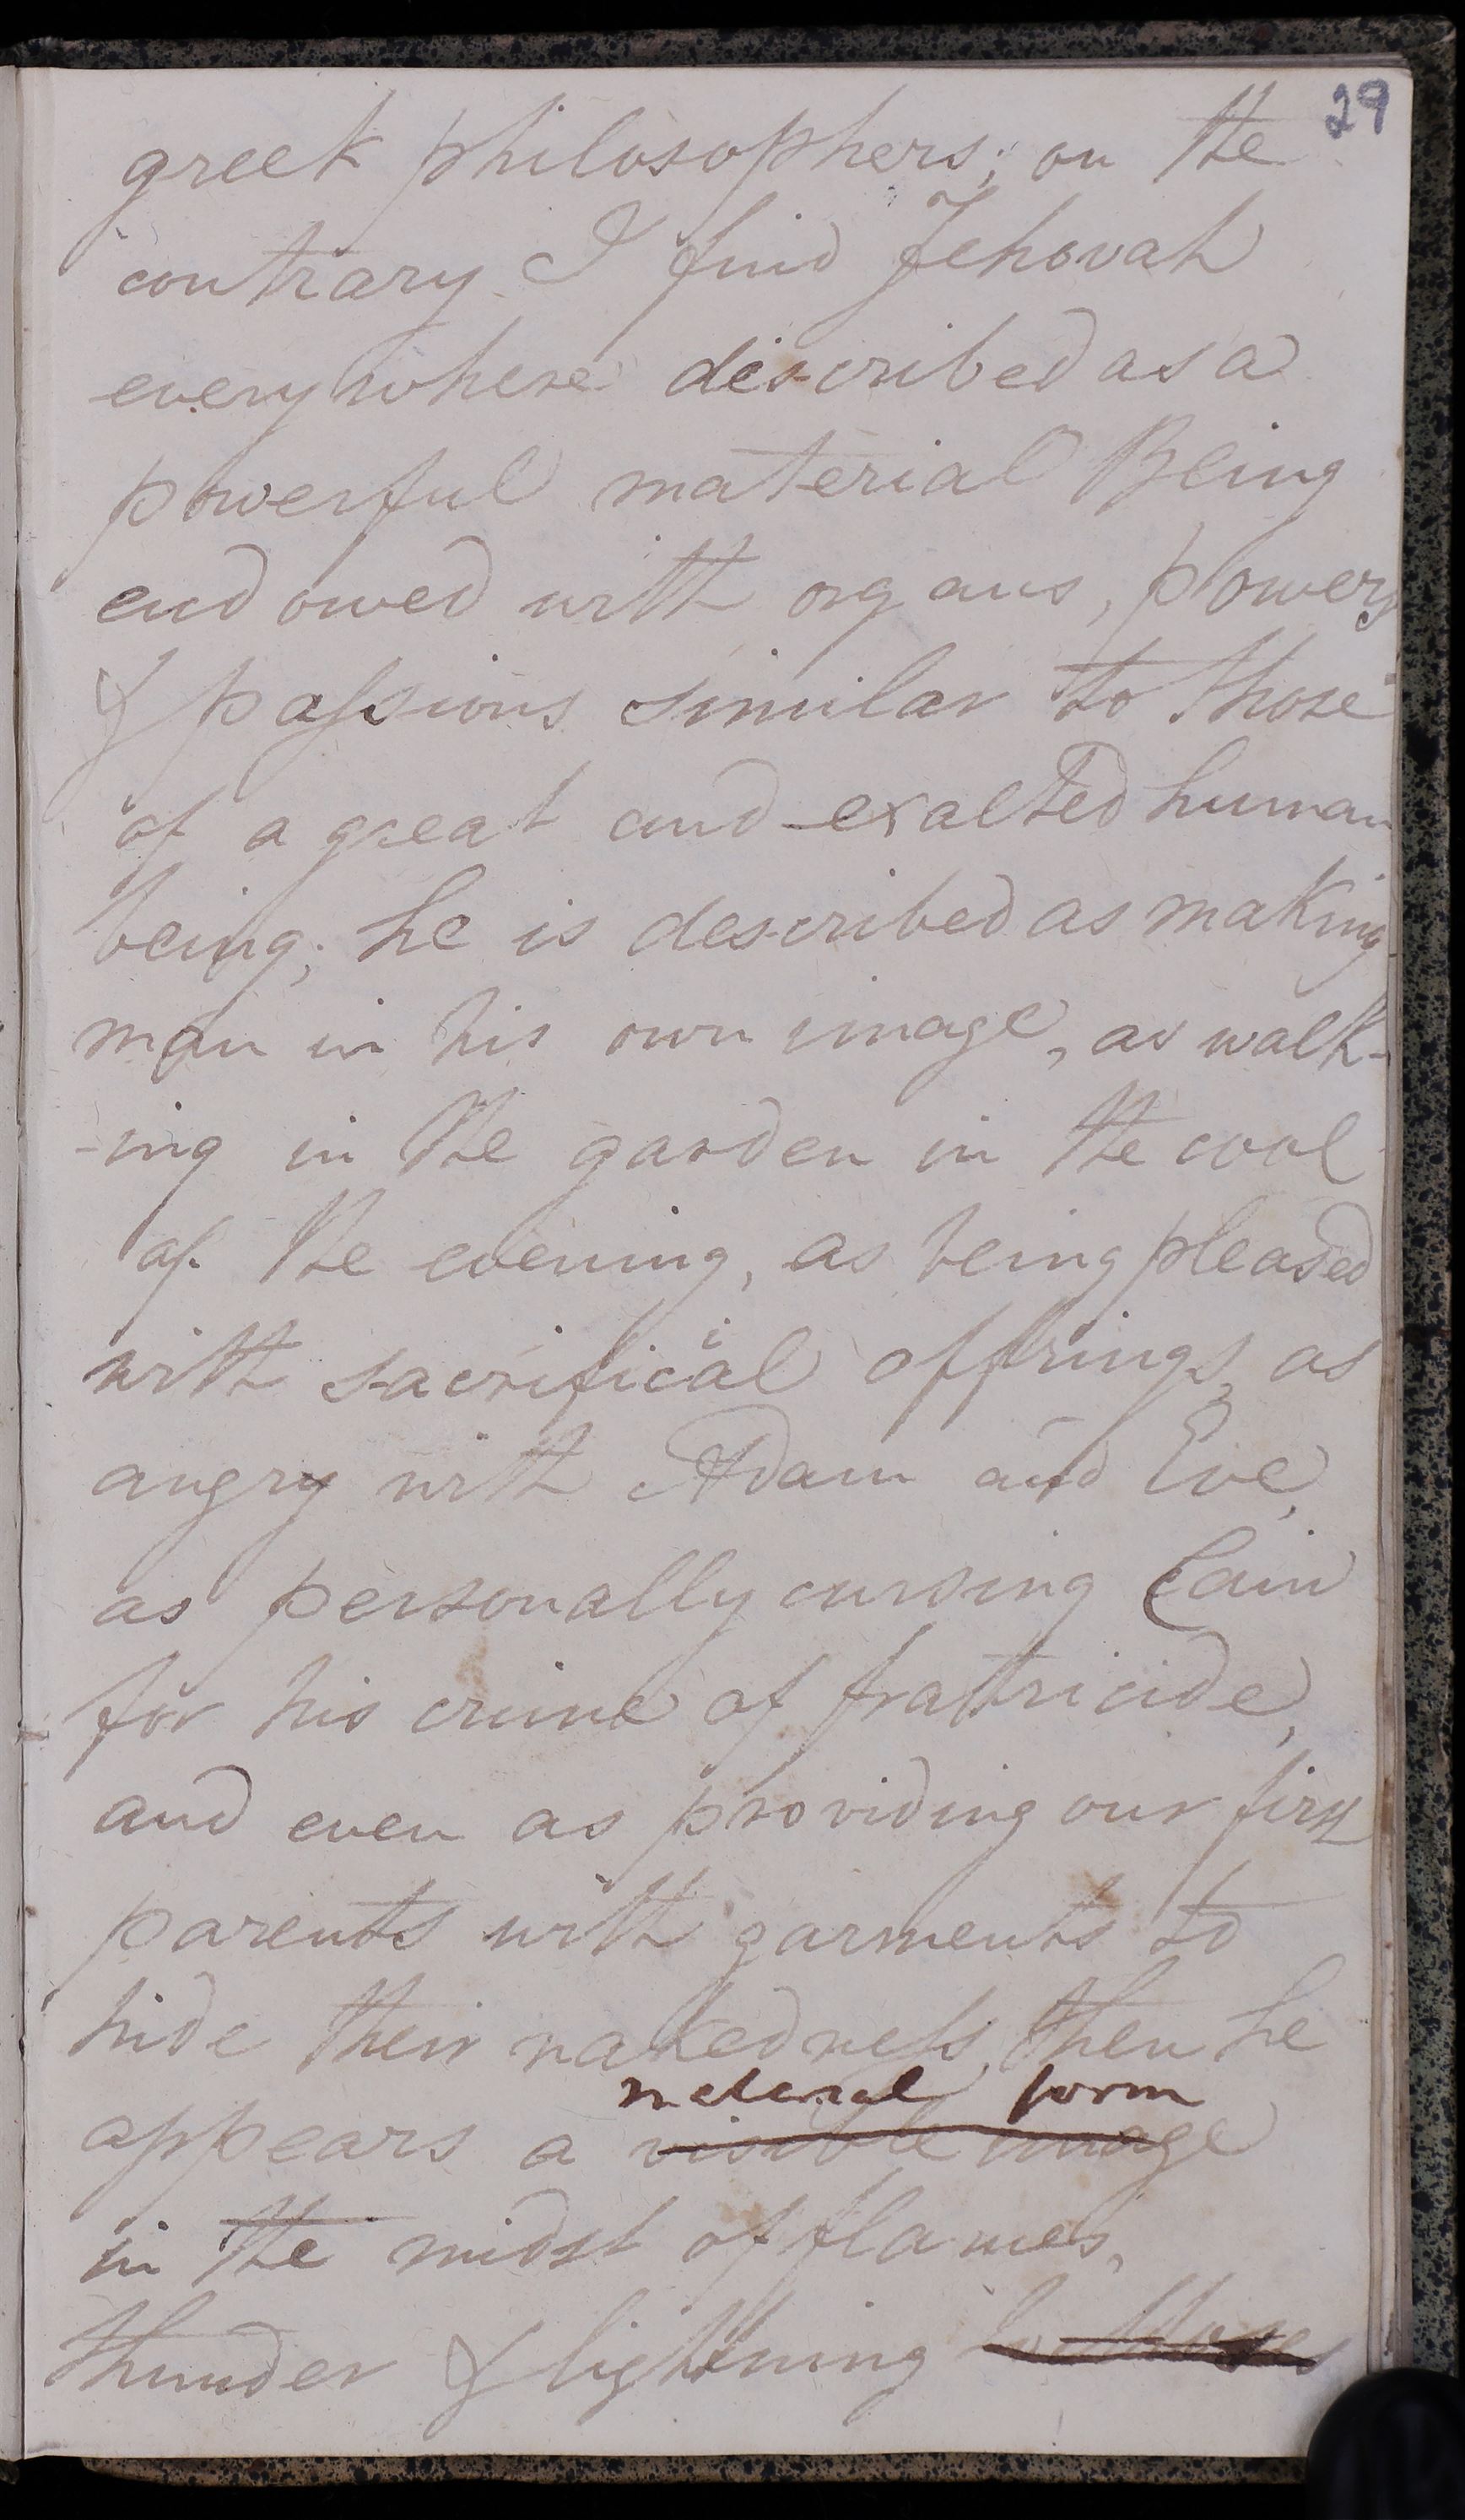 29
greek philosophers; on the
contrary I find Jehovah
everywhere described as a
powerful material Being
endowed with organs, powers
& passions similar to those
of a great and exalted human
being; he is described as making
man in his own image, as walk-
-ing in the garden in the cool
of the evening, as being pleased
with sacrificial offrings, as
angry with Adam and Eve,
as personally cursing Cain
for his crime of frattricide,
and even as providing our first
parents with garments to
hide their nakedness, then he
material form
appears a visible image
in the midst of flames,
thunder & lightning to Moses